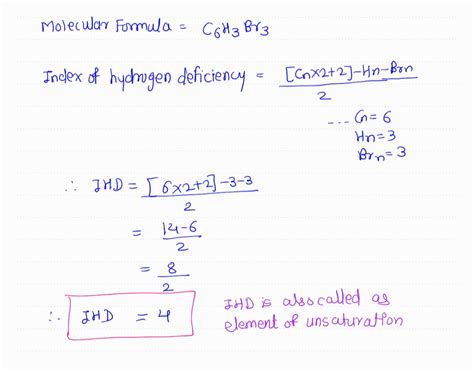 Molecular Formula = C6H3Br3
Index of hydrogen deficiency = [Cn×2+2]-Hn-Brn
2
... Cn = 6
Hn = 3
Brn = 3
∴ IHD = [6×2+2]-3-3
2
= 14-6
2
= 8
2
∴ IHD = 4
IHD is also called as
element of unsaturation